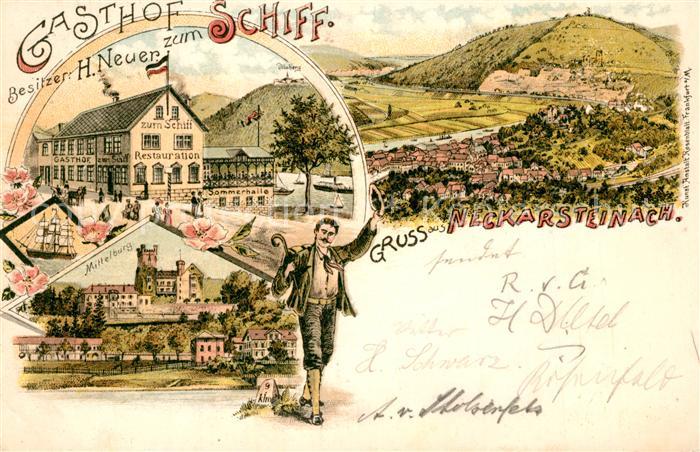 GASTHOF zum SCHIFF.
Besitzer: H. Neuer
Dilsberg
zum Schiff
GASTHOF zum Schiff
Restauration
Sommerhalle
Mittelburg
GRUSS aus NECKARSTEINACH.
9 klm
Kunst Anstalt Rosenblatt Frankfurt a/M.
sendet
R. v. G.
H Dietel
H. Schwarz
Rosenfeld
A. v. Stolzenfels